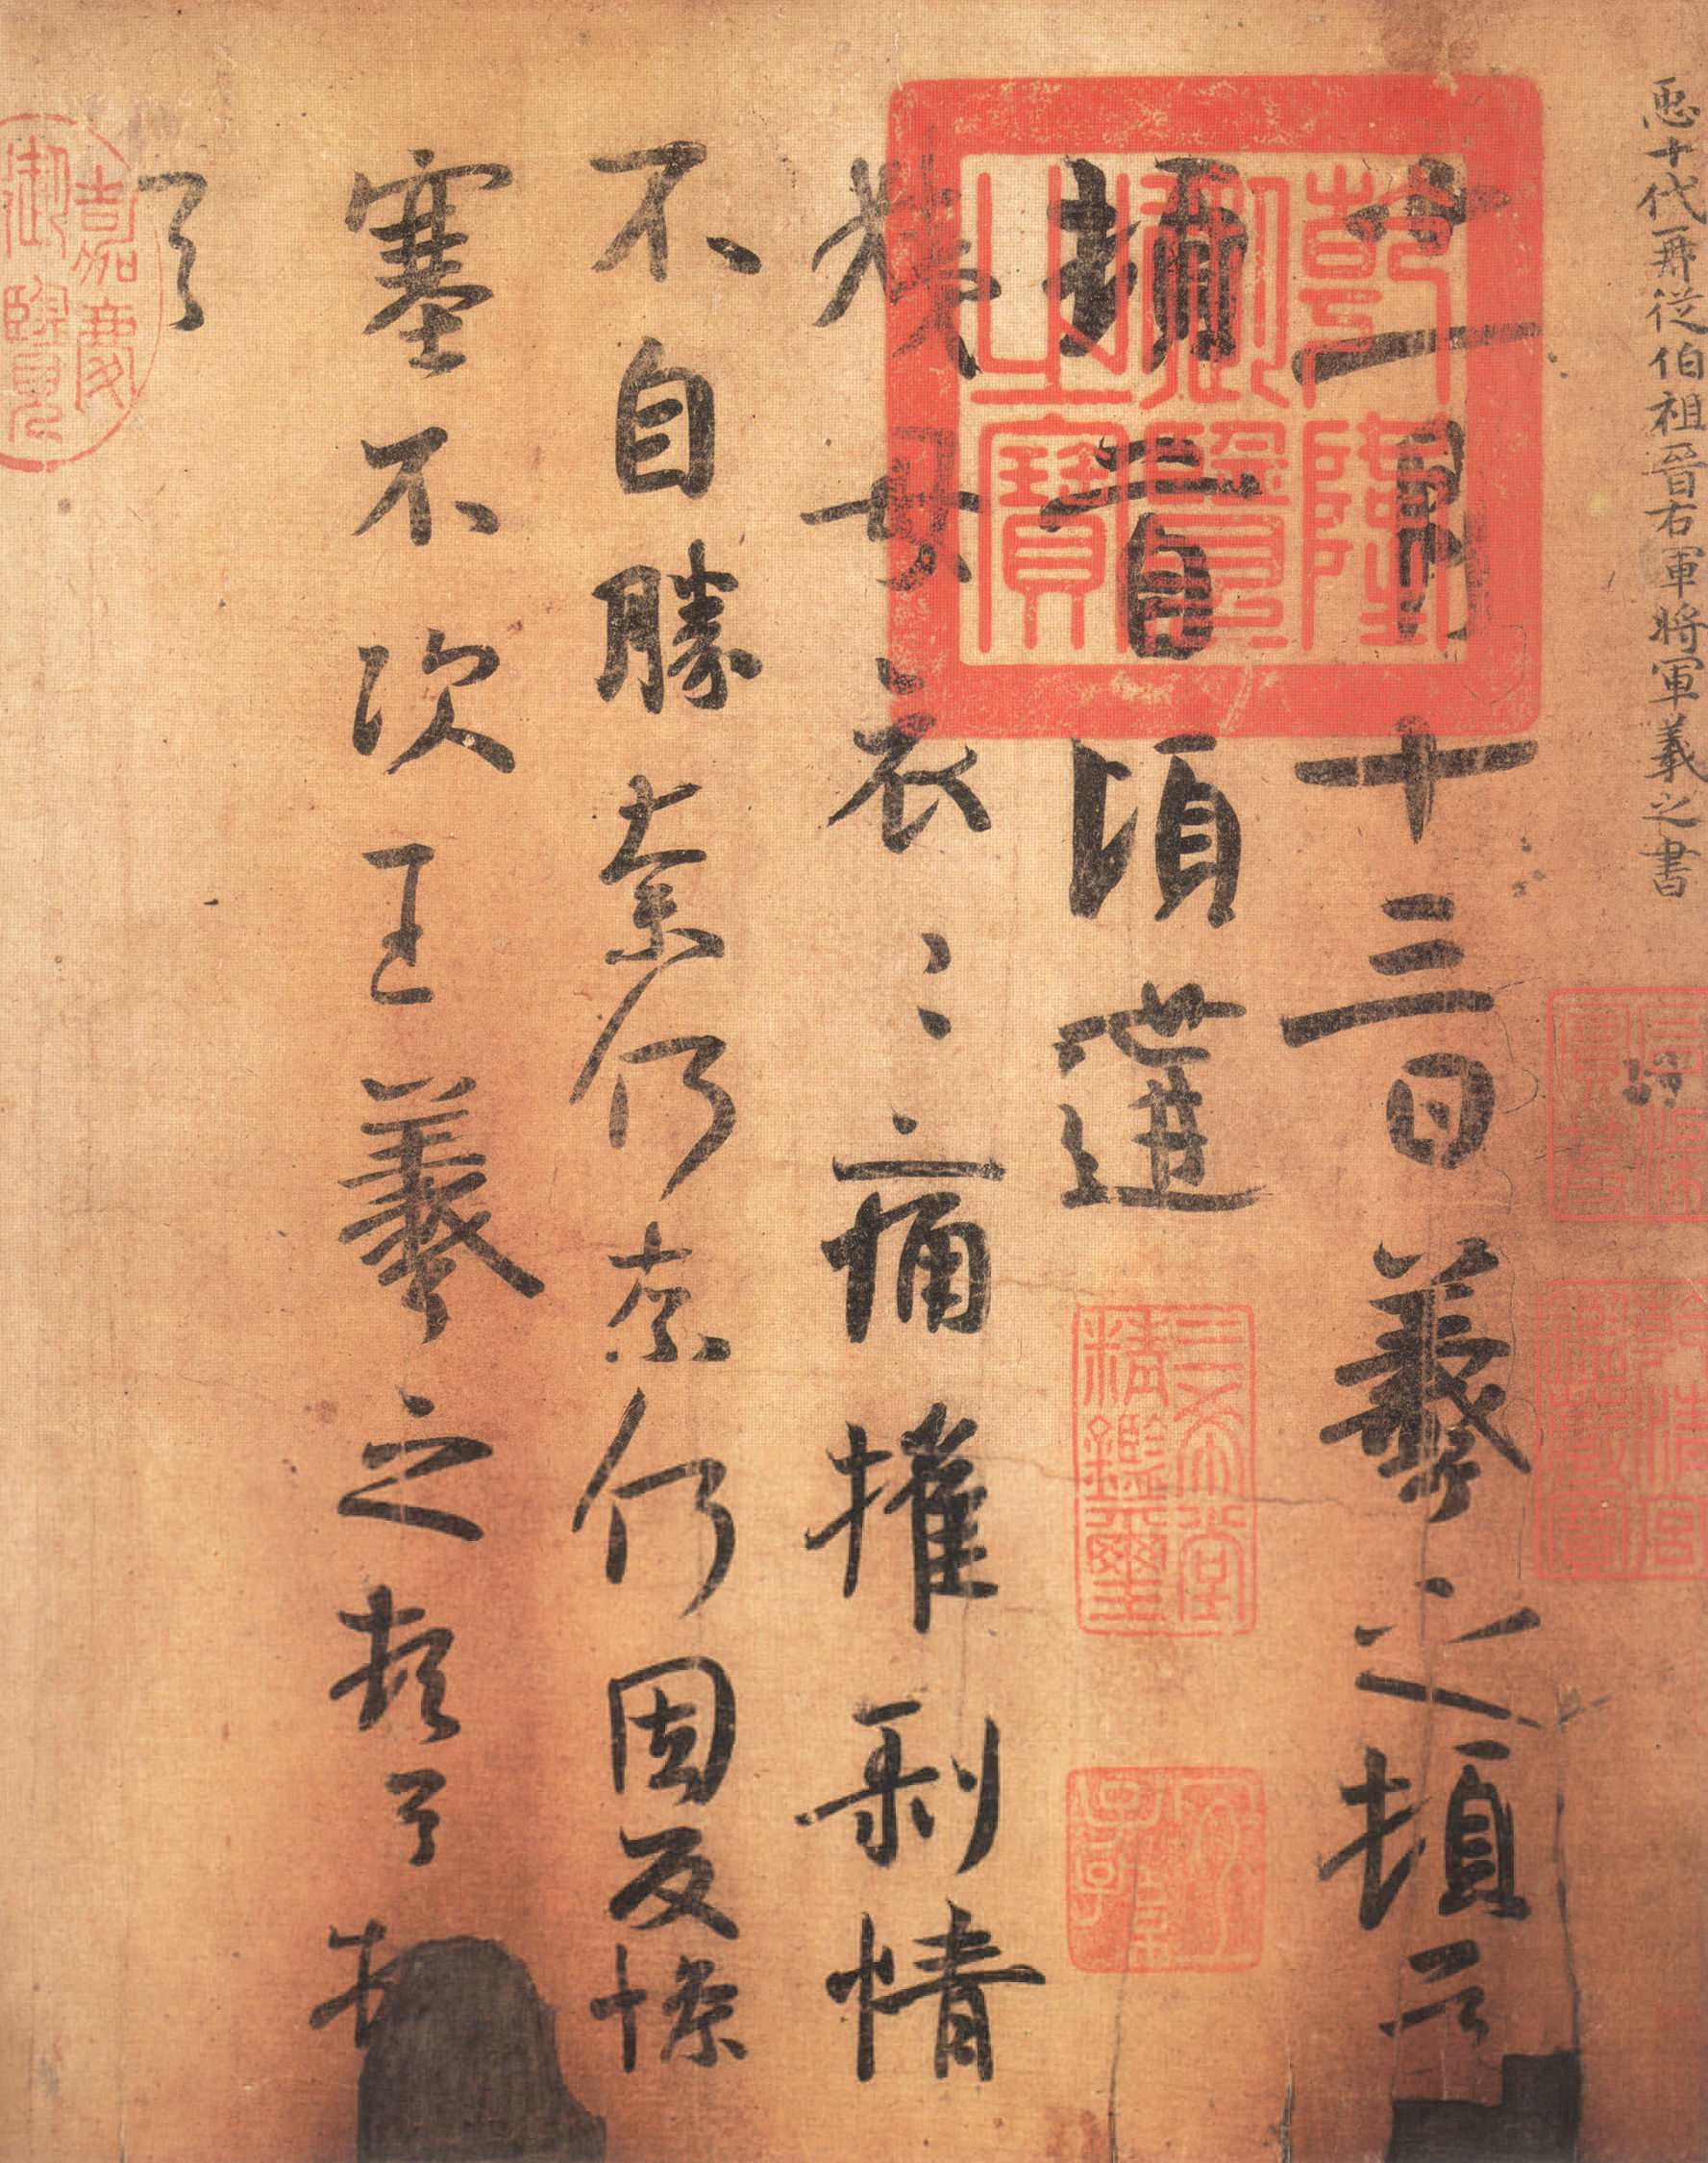 𢘑十代再從伯祖晉右軍將軍羲之書
十一月十三日羲之頓首
頓首頃遘
姨母哀〻痛摧剝情
不自勝奈何奈何因反慘
塞不次王羲之頓首頓
首
乾隆御覽之寶
三希堂精鑑璽
宜子孫
嘉慶御覽
乾清宮鑒藏寶